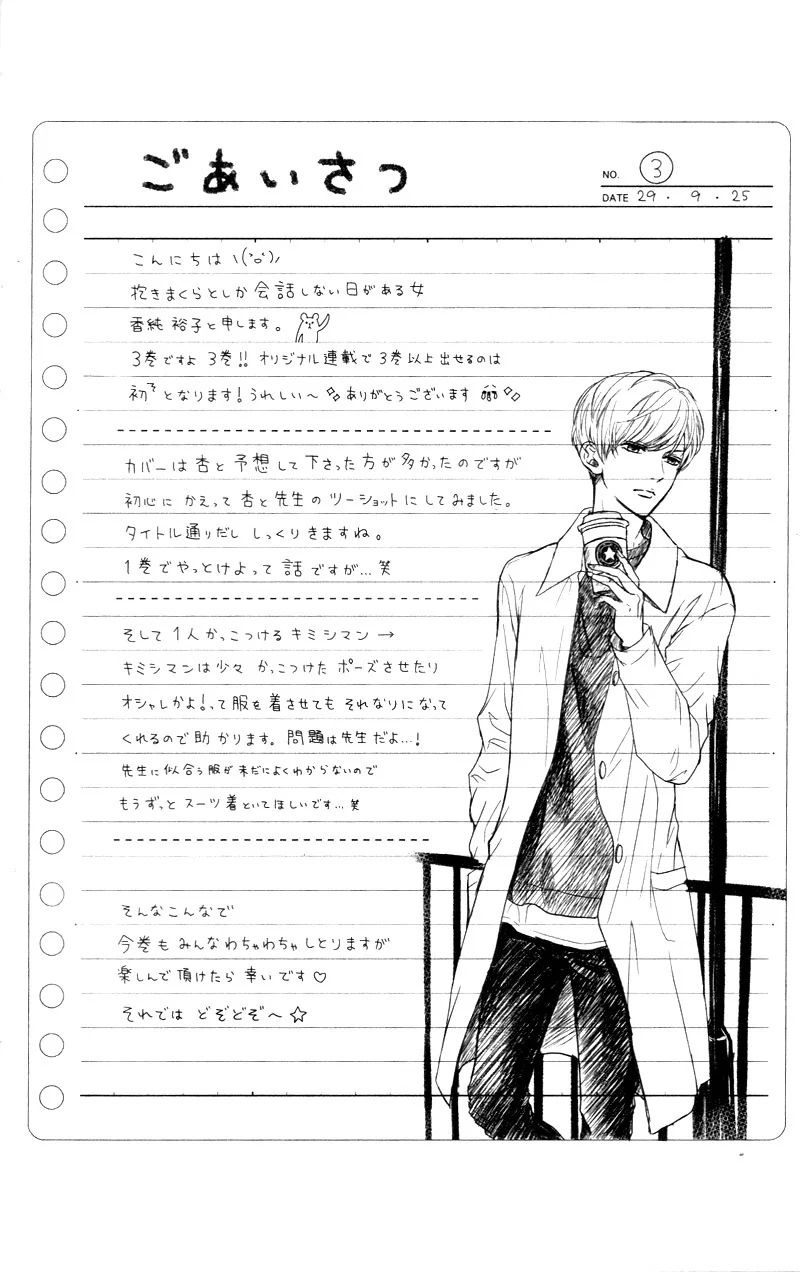 ごあいさつ
NO. ③
DATE 29・9・25
こんにちは ヽ(`o´)ﾉ
抱きまくらとしか会話しない日がある女
香純裕子と申します。
3巻ですよ 3巻!! オリジナル連載で3巻以上出せるのは
初ぞとなります! うれしい〜 ありがとうございます
カバーは杏と予想して下さった方が多かったのですが
初心に かえって 杏と先生の ツーショットに してみました。
タイトル通りだし しっくりきますね。
1巻でやっとけよって 話ですが… 笑
そして 1人かっこつける キミシマン →
キミシマンは少々 かっこつけた ポーズさせたり
オシャレかよ!って服を着させても それなりになって
くれるので助かります。問題は先生だよ…!
先生に似合う服が未だによくわからないので
もうずっと スーツ着といてほしいです… 笑
そんなこんなで
今巻も みんなわちゃわちゃしとりますが
楽しんで頂けたら 幸いです♡
それでは どぞどぞ〜☆